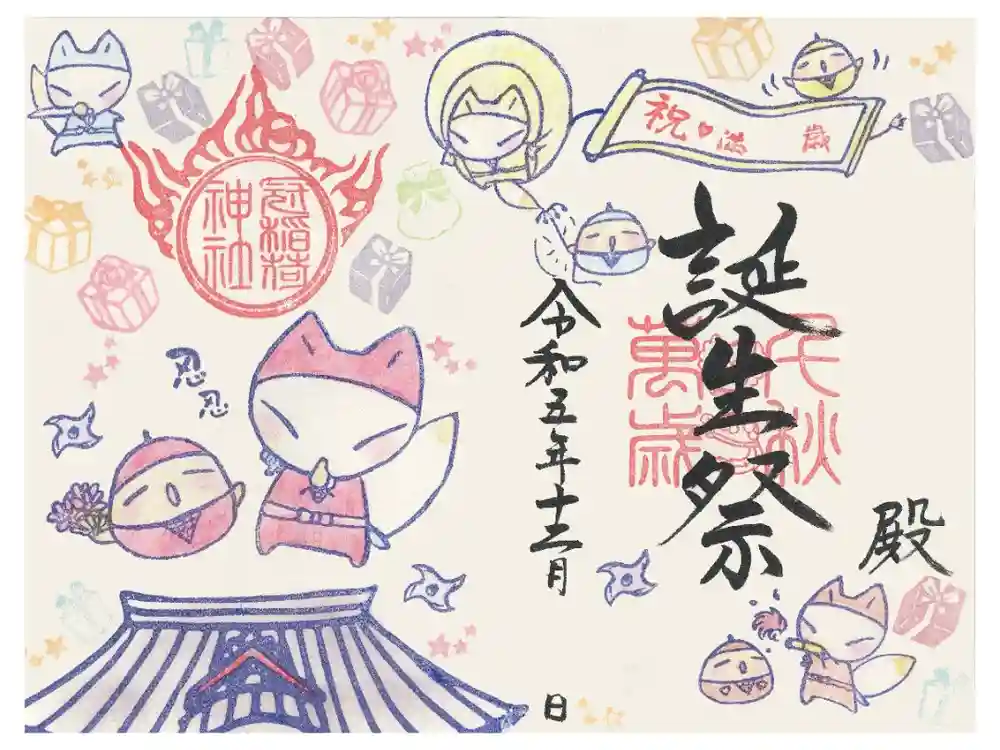 祝♥満 歳
殿
誕生祭
千秋
萬歳
令和五年十二月
日
冠稲荷
神社
忍
忍